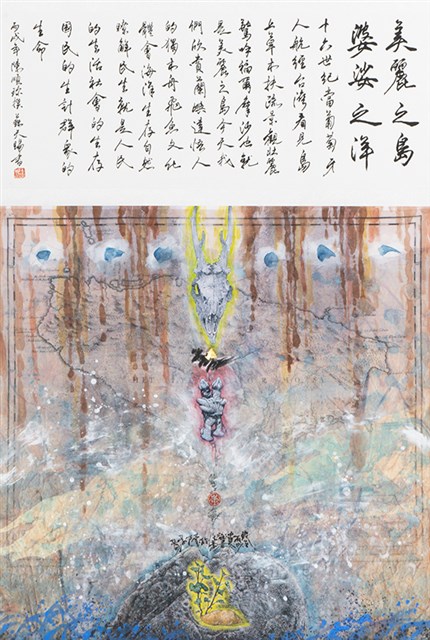 美麗之島
婆娑之洋
十六世紀當葡萄牙
人航經台灣看見島
上草木扶疏景觀壯麗
驚呼福爾摩沙也就
是美麗之島今天我
們欣賞蘭嶼達悟人
的獨木舟飛魚文化
體會海洋生存自然
瞭解民生就是人民
的生活社會的生存
國民的生計群眾的
生命
丙戌年